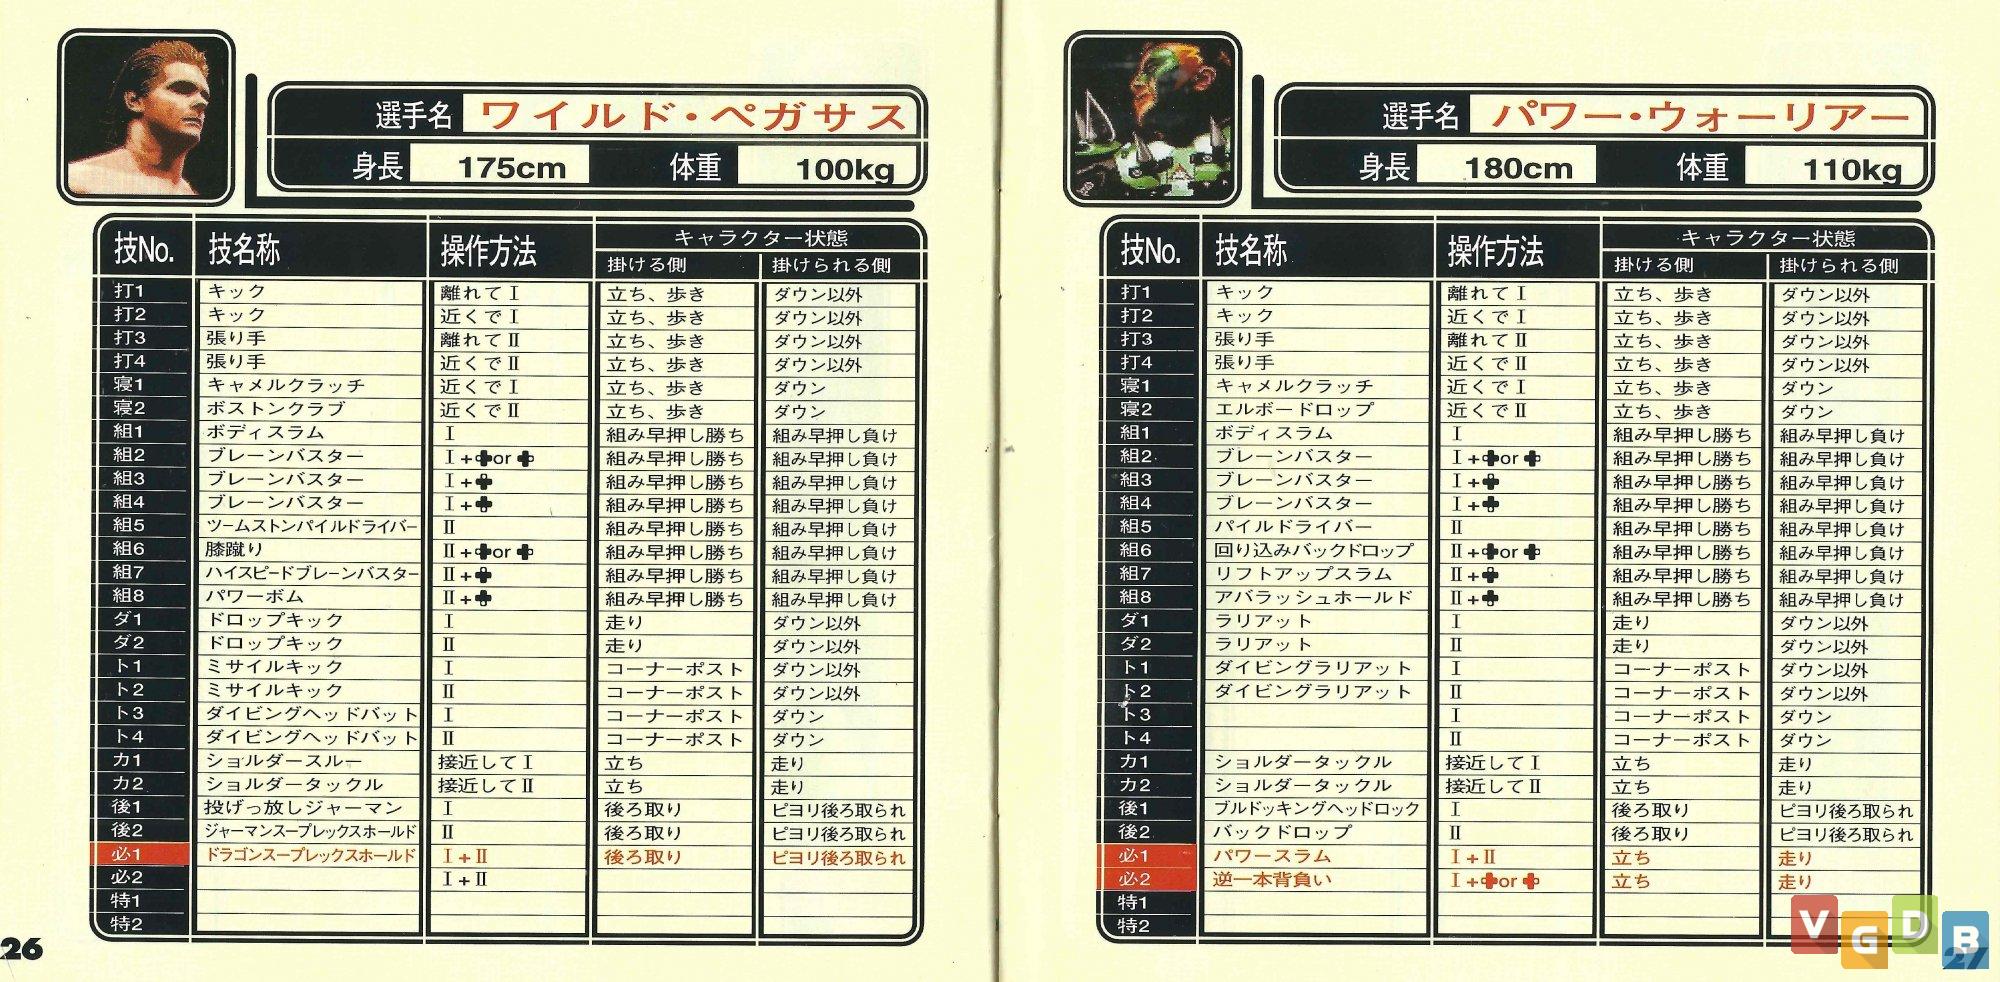 選手名 ワイルド・ペガサス
身長 175cm 体重 100kg
技No. 技名称 操作方法 キャラクター状態
掛ける側 掛けられる側
打1 キック 離れてⅠ 立ち、歩き ダウン以外
打2 キック 近くでⅠ 立ち、歩き ダウン以外
打3 張り手 離れてⅡ 立ち、歩き ダウン以外
打4 張り手 近くでⅡ 立ち、歩き ダウン以外
寝1 キャメルクラッチ 近くでⅠ 立ち、歩き ダウン
寝2 ボストンクラブ 近くでⅡ 立ち、歩き ダウン
組1 ボディスラム Ⅰ 組み早押し勝ち 組み早押し負け
組2 ブレーンバスター Ⅰ+or 組み早押し勝ち 組み早押し負け
組3 ブレーンバスター Ⅰ+ 組み早押し勝ち 組み早押し負け
組4 ブレーンバスター Ⅰ+ 組み早押し勝ち 組み早押し負け
組5 ツームストンパイルドライバー Ⅱ 組み早押し勝ち 組み早押し負け
組6 膝蹴り Ⅱ+or 組み早押し勝ち 組み早押し負け
組7 ハイスピードブレーンバスター Ⅱ+ 組み早押し勝ち 組み早押し負け
組8 パワーボム Ⅱ+ 組み早押し勝ち 組み早押し負け
ダ1 ドロップキック Ⅰ 走り ダウン以外
ダ2 ドロップキック Ⅱ 走り ダウン以外
ト1 ミサイルキック Ⅰ コーナーポスト ダウン以外
ト2 ミサイルキック Ⅱ コーナーポスト ダウン以外
ト3 ダイビングヘッドバット Ⅰ コーナーポスト ダウン
ト4 ダイビングヘッドバット Ⅱ コーナーポスト ダウン
カ1 ショルダースルー 接近してⅠ 立ち 走り
カ2 ショルダータックル 接近してⅡ 立ち 走り
後1 投げっ放しジャーマン Ⅰ 後ろ取り ピヨリ後ろ取られ
後2 ジャーマンスープレックスホールド Ⅱ 後ろ取り ピヨリ後ろ取られ
必1 ドラゴンスープレックスホールド Ⅰ+Ⅱ 後ろ取り ピヨリ後ろ取られ
必2 Ⅰ+Ⅱ
特1
特2
26
選手名 パワー・ウォーリアー
身長 180cm 体重 110kg
技No. 技名称 操作方法 キャラクター状態
掛ける側 掛けられる側
打1 キック 離れてⅠ 立ち、歩き ダウン以外
打2 キック 近くでⅠ 立ち、歩き ダウン以外
打3 張り手 離れてⅡ 立ち、歩き ダウン以外
打4 張り手 近くでⅡ 立ち、歩き ダウン以外
寝1 キャメルクラッチ 近くでⅠ 立ち、歩き ダウン
寝2 エルボードロップ 近くでⅡ 立ち、歩き ダウン
組1 ボディスラム Ⅰ 組み早押し勝ち 組み早押し負け
組2 ブレーンバスター Ⅰ+or 組み早押し勝ち 組み早押し負け
組3 ブレーンバスター Ⅰ+ 組み早押し勝ち 組み早押し負け
組4 ブレーンバスター Ⅰ+ 組み早押し勝ち 組み早押し負け
組5 パイルドライバー Ⅱ 組み早押し勝ち 組み早押し負け
組6 回り込みバックドロップ Ⅱ+or 組み早押し勝ち 組み早押し負け
組7 リフトアップスラム Ⅱ+ 組み早押し勝ち 組み早押し負け
組8 アバラッシュホールド Ⅱ+ 組み早押し勝ち 組み早押し負け
ダ1 ラリアット Ⅰ 走り ダウン以外
ダ2 ラリアット Ⅱ 走り ダウン以外
ト1 ダイビングラリアット Ⅰ コーナーポスト ダウン以外
ト2 ダイビングラリアット Ⅱ コーナーポスト ダウン以外
ト3 Ⅰ コーナーポスト ダウン
ト4 Ⅱ コーナーポスト ダウン
カ1 ショルダータックル 接近してⅠ 立ち 走り
カ2 ショルダータックル 接近してⅡ 立ち 走り
後1 ブルドッキングヘッドロック Ⅰ 後ろ取り ピヨリ後ろ取られ
後2 バックドロップ Ⅱ 後ろ取り ピヨリ後ろ取られ
必1 パワースラム Ⅰ+Ⅱ 立ち 走り
必2 逆一本背負い Ⅰ+or 立ち 走り
特1
特2
VGDB
27